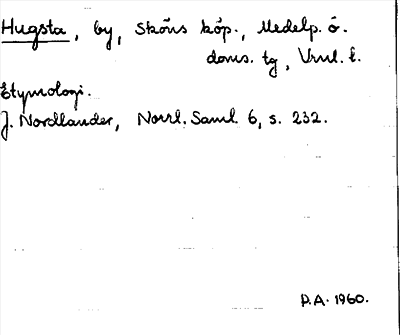 Hugsta, by, Sköns köp., Medelp. ö.
doms. tg, Vnrl. l.
Etymologi.
J. Nordlander, Norrl. Saml. 6, s. 232.
P.A. 1960.